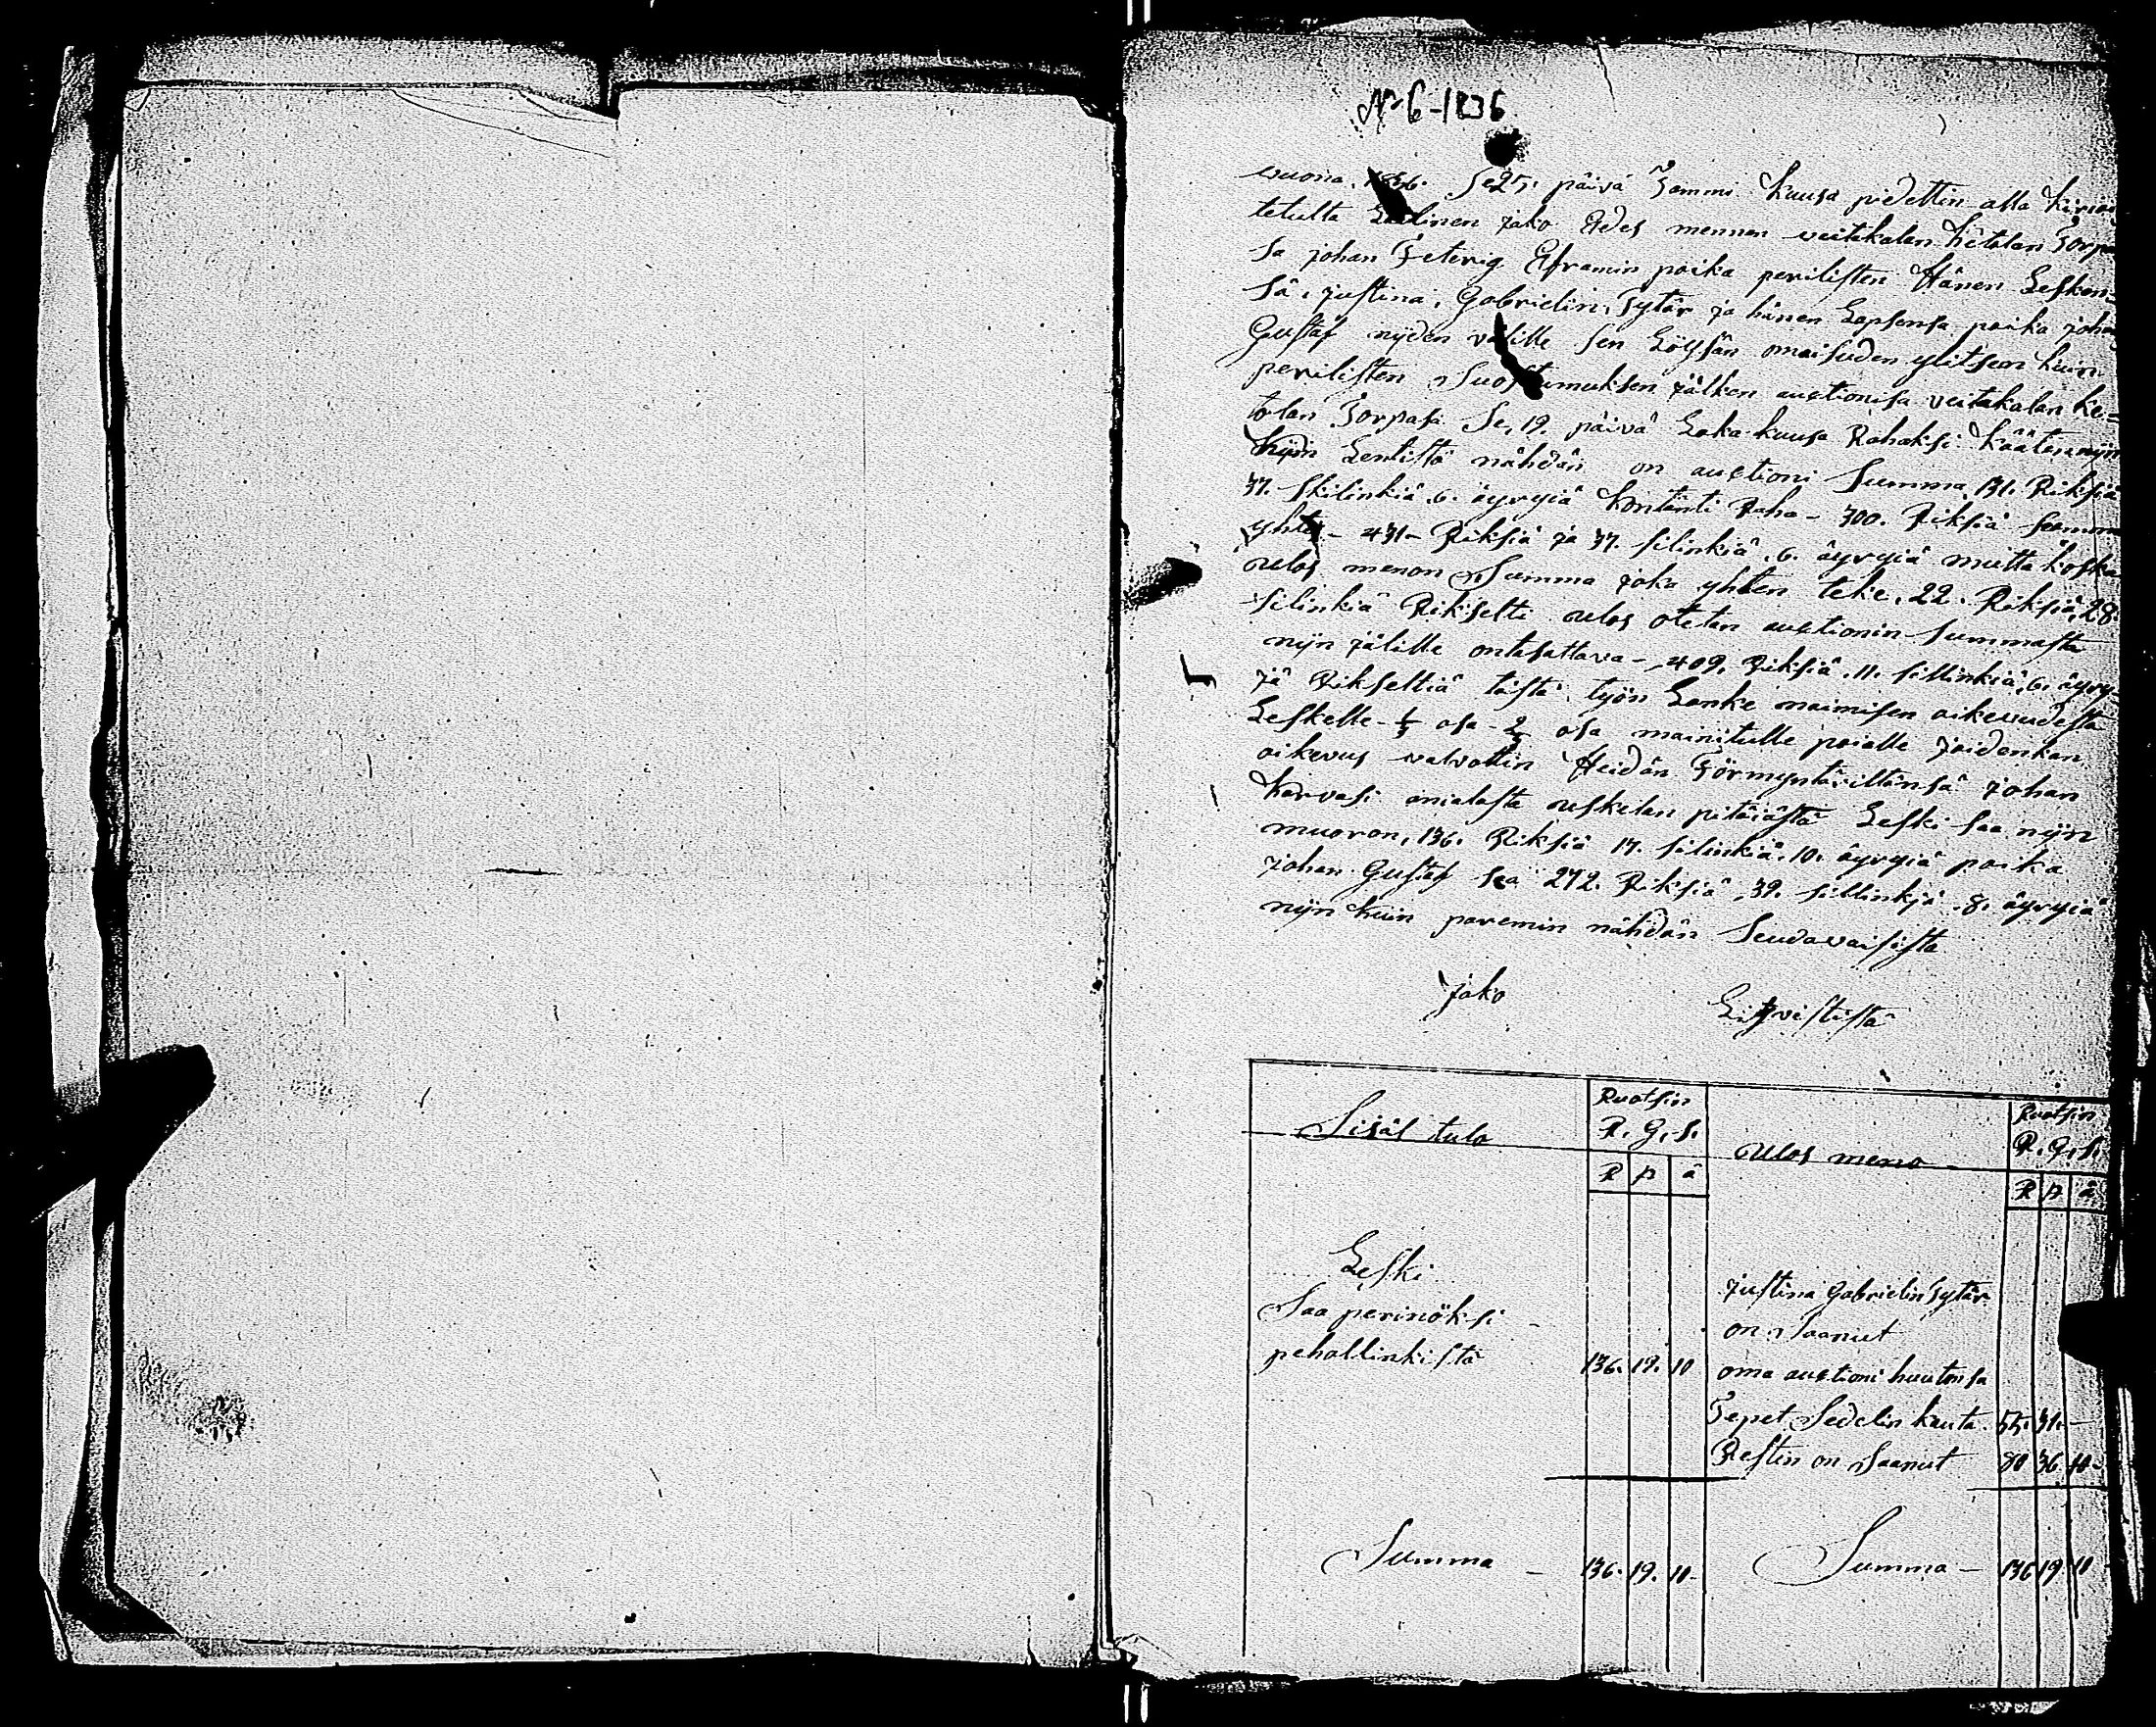 No 6-1836
wuona. 1836. Se 25. päivä Tammi kuusa pidettin alla kirioi
tetulta Laelinen jako Edes mennen weitakalan ketolan Torpa
sa johan Feterig Eframin poika perilisten Hänen Lesken-
sä, justina, Gabrielin, Tytär ja hänen Lapsensa poika joha
Gustaf nyiden välille sen Löysän omaisuden ylitsen kuin
perilisten Suostumuksen jälken auctionisa veitakalan ke-
tolan Torpasa Se, 19. päivä Loka-kuusa Rahaksi kääten nyin
kuin Lentistä nähdän on auctioni Summa 131. Riksiä
37. skilinkiä .6. äyryiä kontanti Raha - 300. Riksiä Summa
yhtä - 431 - Riksiä ja 37. silinkiä .6. äyryiä mutta koska
ulos menon Summa joka yhten teke. 22. Riksiä 28.
silinkiä Rikselti ulos otetan auctionin Summasta
nyin jälille on tasattava - 409. Riksiä .11. sillinkiä .6. äyry-
jä Rikseltiä tästä työn Lanke naimisen oikeuudesta
Leskelle - 1/3 osa - 2/3 osa mainitulle poialle joidenkan
oikeuus valvottin Heidän Förmyntäriltänsä johan
karvasi anialasta uskelan pitäiästä Leski saa nyin
muoron, 136. Riksiä 17. silinkiä .10. äyryiä poika
johan Gustaf saa 272. Riksiä .39. sillinkjä .8. äyryiä
nyin kuin paremin nähdän Seudavaisista
jako Litvististä
Sisäl tulo
Ruotsin
R. G. s.
R p ä
ulos meno -
Ruotsin
R. G. s.
R p ä
Leski
Saa perinöksi -
pehallinkistä 136. 19. 10
justina Gabrielin Tytär
on Saanut
oma auctioni huutonsa
Tepet Sedelin kauta. 55. 31. -
Resten on Saanut 80 36 10 -
Summa - 136. 19. 10 -
Summa - 136 19 10